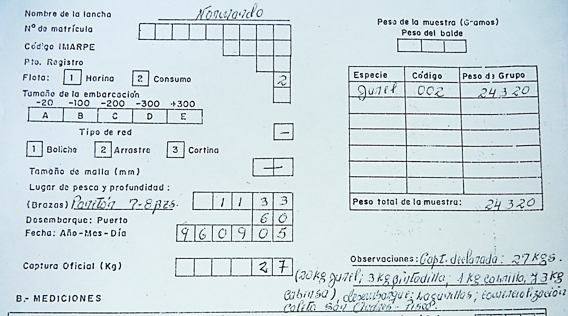 Nombre de la lancha
Nº de matrícula
Código IMARPE
Pto. Registro
Flota: 1 Harina 2 Consumo 2
Tamaño de la embarcación
-20 -100 -200 -300 +300
A B C D E
Tipo de red —
1 Boliche 2 Arrastre 3 Cortina
Tamaño de malla (mm) —
Lugar de pesca y profundidad:
(Brazas) 7-8 pzs. 1 1 3 3
Desembarque: Puerto 6 0
Fecha: Año-Mes-Día 9 6 0 9 0 5
Captura Oficial (Kg) 2 7
B.- MEDICIONES
Peso de la muestra (Gramos)
Peso del balde
Especie Código Peso de Grupo
Jurel 002 24320
Peso total de la muestra: 24320
Observaciones: Capt. declarada: 27 kgs.
(20 kg jurel; 3 kg pintadilla, 1 kg 3 kg
cabinza), desembarque: Lagunillas; comercialización
caleta San Andrés - Pisco